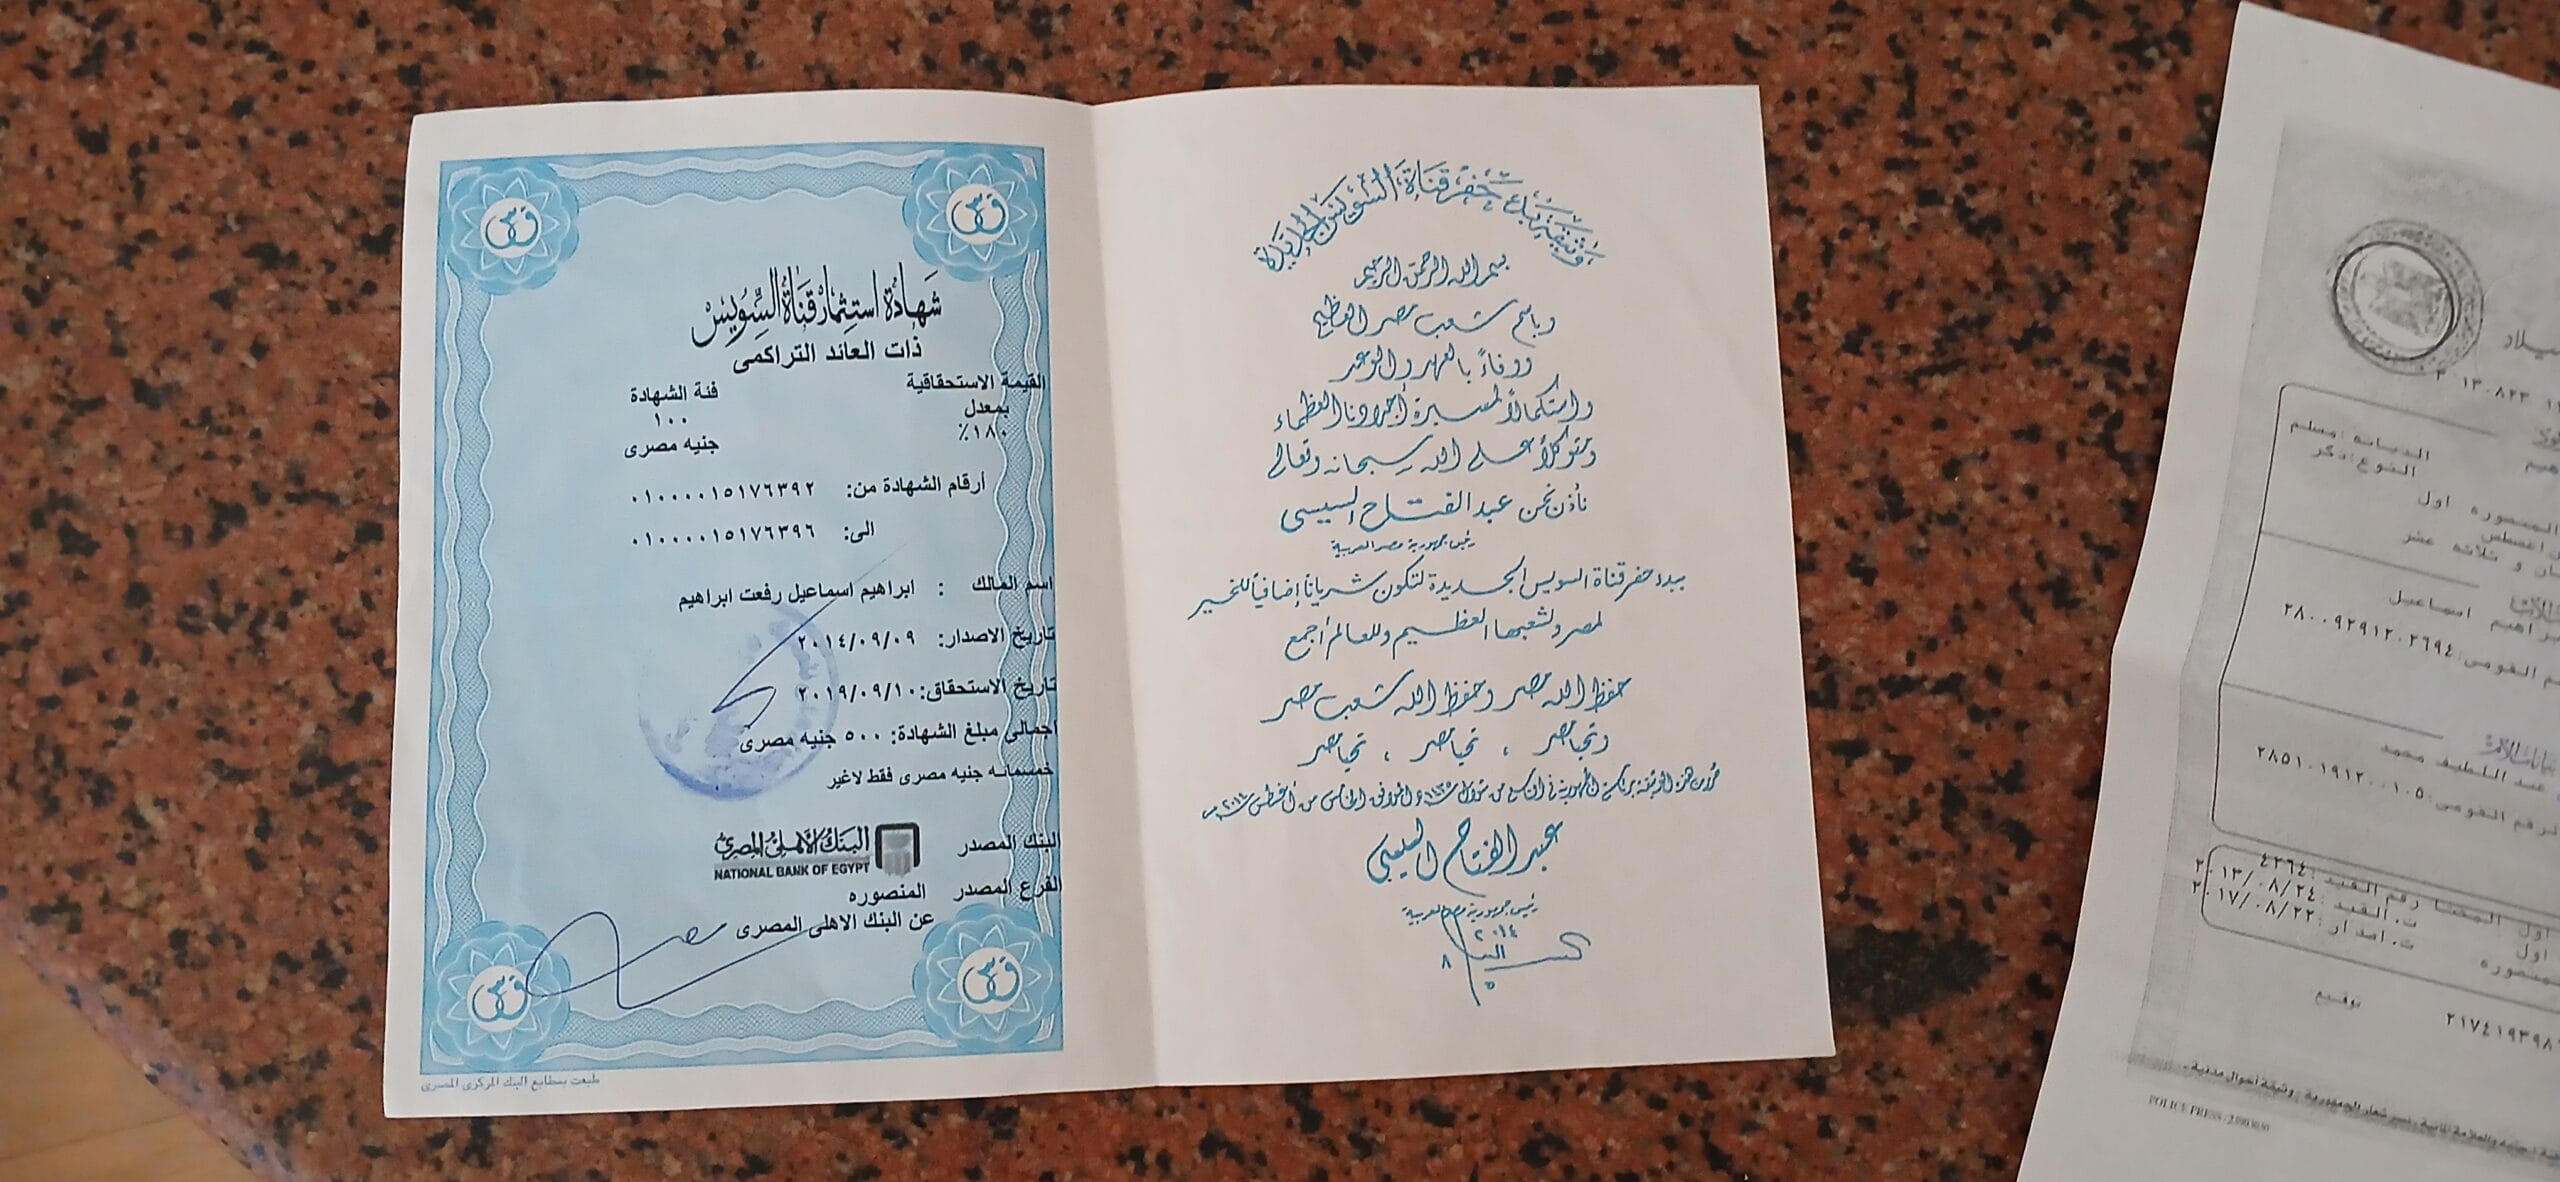 شهادة استثمار قناة السويس
ذات العائد التراكمى
القيمة الاستحقاقية
بمعدل
١٨٠٪
فئة الشهادة
١٠٠
جنيه مصرى
أرقام الشهادة من: ٠١٠٠٠٠١٥١٧٦٣٩٢
الى: ٠١٠٠٠٠١٥١٧٦٣٩٦
اسم المالك : ابراهيم اسماعيل رفعت ابراهيم
تاريخ الاصدار: ٢٠١٤/٠٩/٠٩
تاريخ الاستحقاق: ٢٠١٩/٠٩/١٠
اجمالى مبلغ الشهادة: ٥٠٠ جنيه مصرى
خمسمائه جنيه مصرى فقط لاغير
البنك المصدر
البنك الأهلى المصرى
NATIONAL BANK OF EGYPT
الفرع المصدر المنصوره
عن البنك الاهلى المصرى
طبعت بمطابع البنك المركزى المصرى
وثيقة بدء حفر قناة السويس الجديدة
بسم الله الرحمن الرحيم
وباسم شعب مصر العظيم
ووفاءً بالعهد والوعد
واستكمالاً لمسيرة أجدادنا العظماء
ومتوكلاً على الله سبحانه وتعالى
نأذن نحن عبد الفتاح السيسى
رئيس جمهورية مصر العربية
ببدء حفر قناة السويس الجديدة لتكون شرياناً إضافياً للخير
لمصر ولشعبها العظيم وللعالم أجمع
حفظ الله مصر وحفظ الله شعب مصر
وتحيا مصر ، تحيا مصر ، تحيا مصر
عبد الفتاح السيسى
رئيس جمهورية مصر العربية
٢٠١٤
٨
٥
الديانه :مسلم
النوع :ذكر
المنصوره اول
اغسطس
و ثلاثه عشر
ابراهيم اسماعيل
القومى: ٢٨٠٠٩٢٩١٢٠٢٦٩٤
عبد اللطيف محمد
الرقم القومى: ٢٨٥١٠١٩١٢٠٠١٠٥
رقم القيد :٤٢٦٤
ت. القيد :٢٠١٣/٠٨/٢٤
ت. اصدار :٢٠١٧/٠٨/٢٢
توقيع
وثيقة أحوال مدنية
POLICE PRESS